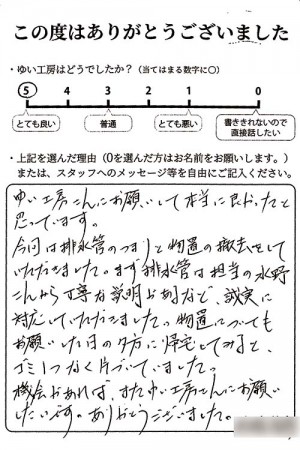 この度はありがとうございました
・ゆい工房はどうでしたか？（当てはまる数字に〇）
5 4 3 2 1 0
とても良い 普通 とても悪い 書ききれないので
直接話したい
・上記を選んだ理由（0を選んだ方はお名前をお願いします。）
または、スタッフへのメッセージ等を自由にご記入ください。
ゆい工房さんにお願いして本当に良かったと
思っています。
今回は排水管のつまりと物置の撤去をして
いただきました。まず排水管は担当の水野
さんから丁寧な説明があるなど、誠実に
対応していただきました。物置についても
お願いした日の夕方に帰宅してみると、
ゴミ1つなく片づいていました。
機会があれば、またゆい工房さんにお願い
したいです。ありがとうございました。